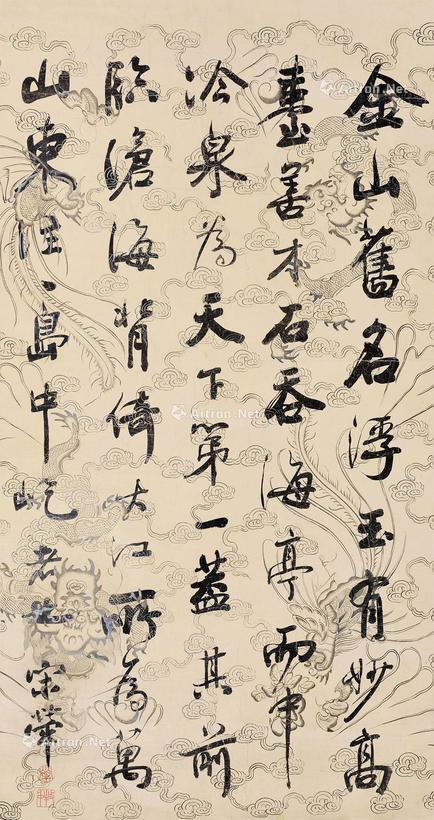 金山舊名浮玉有妙高
臺善本石吞海亭而中
冷泉為天下第一蓋其前
臨滄海背倚江所為萬
山東注一島中屹者也宋犖
Artron.Net